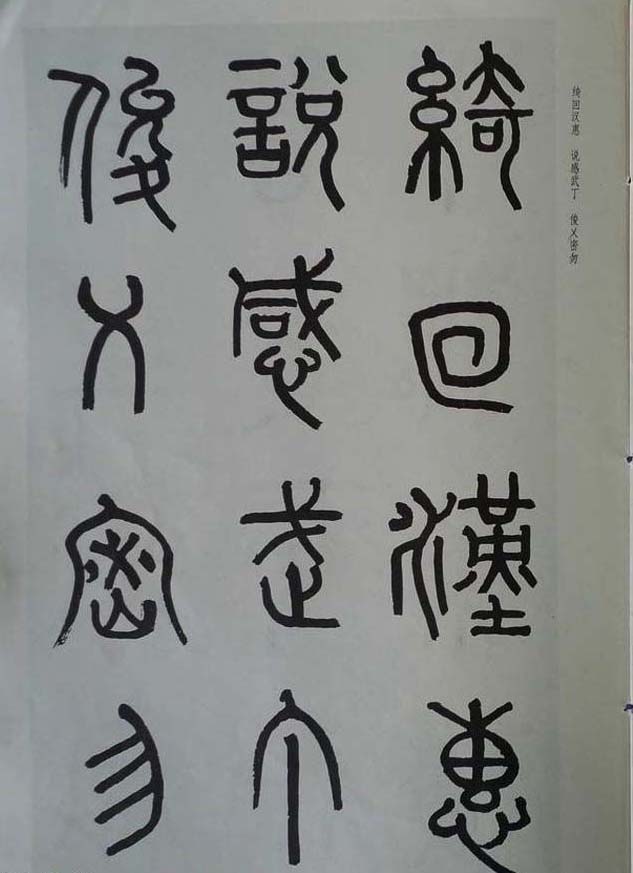 綺回漢惠
說感武丁
俊乂密勿
绮回汉惠 说感武丁 俊乂密勿